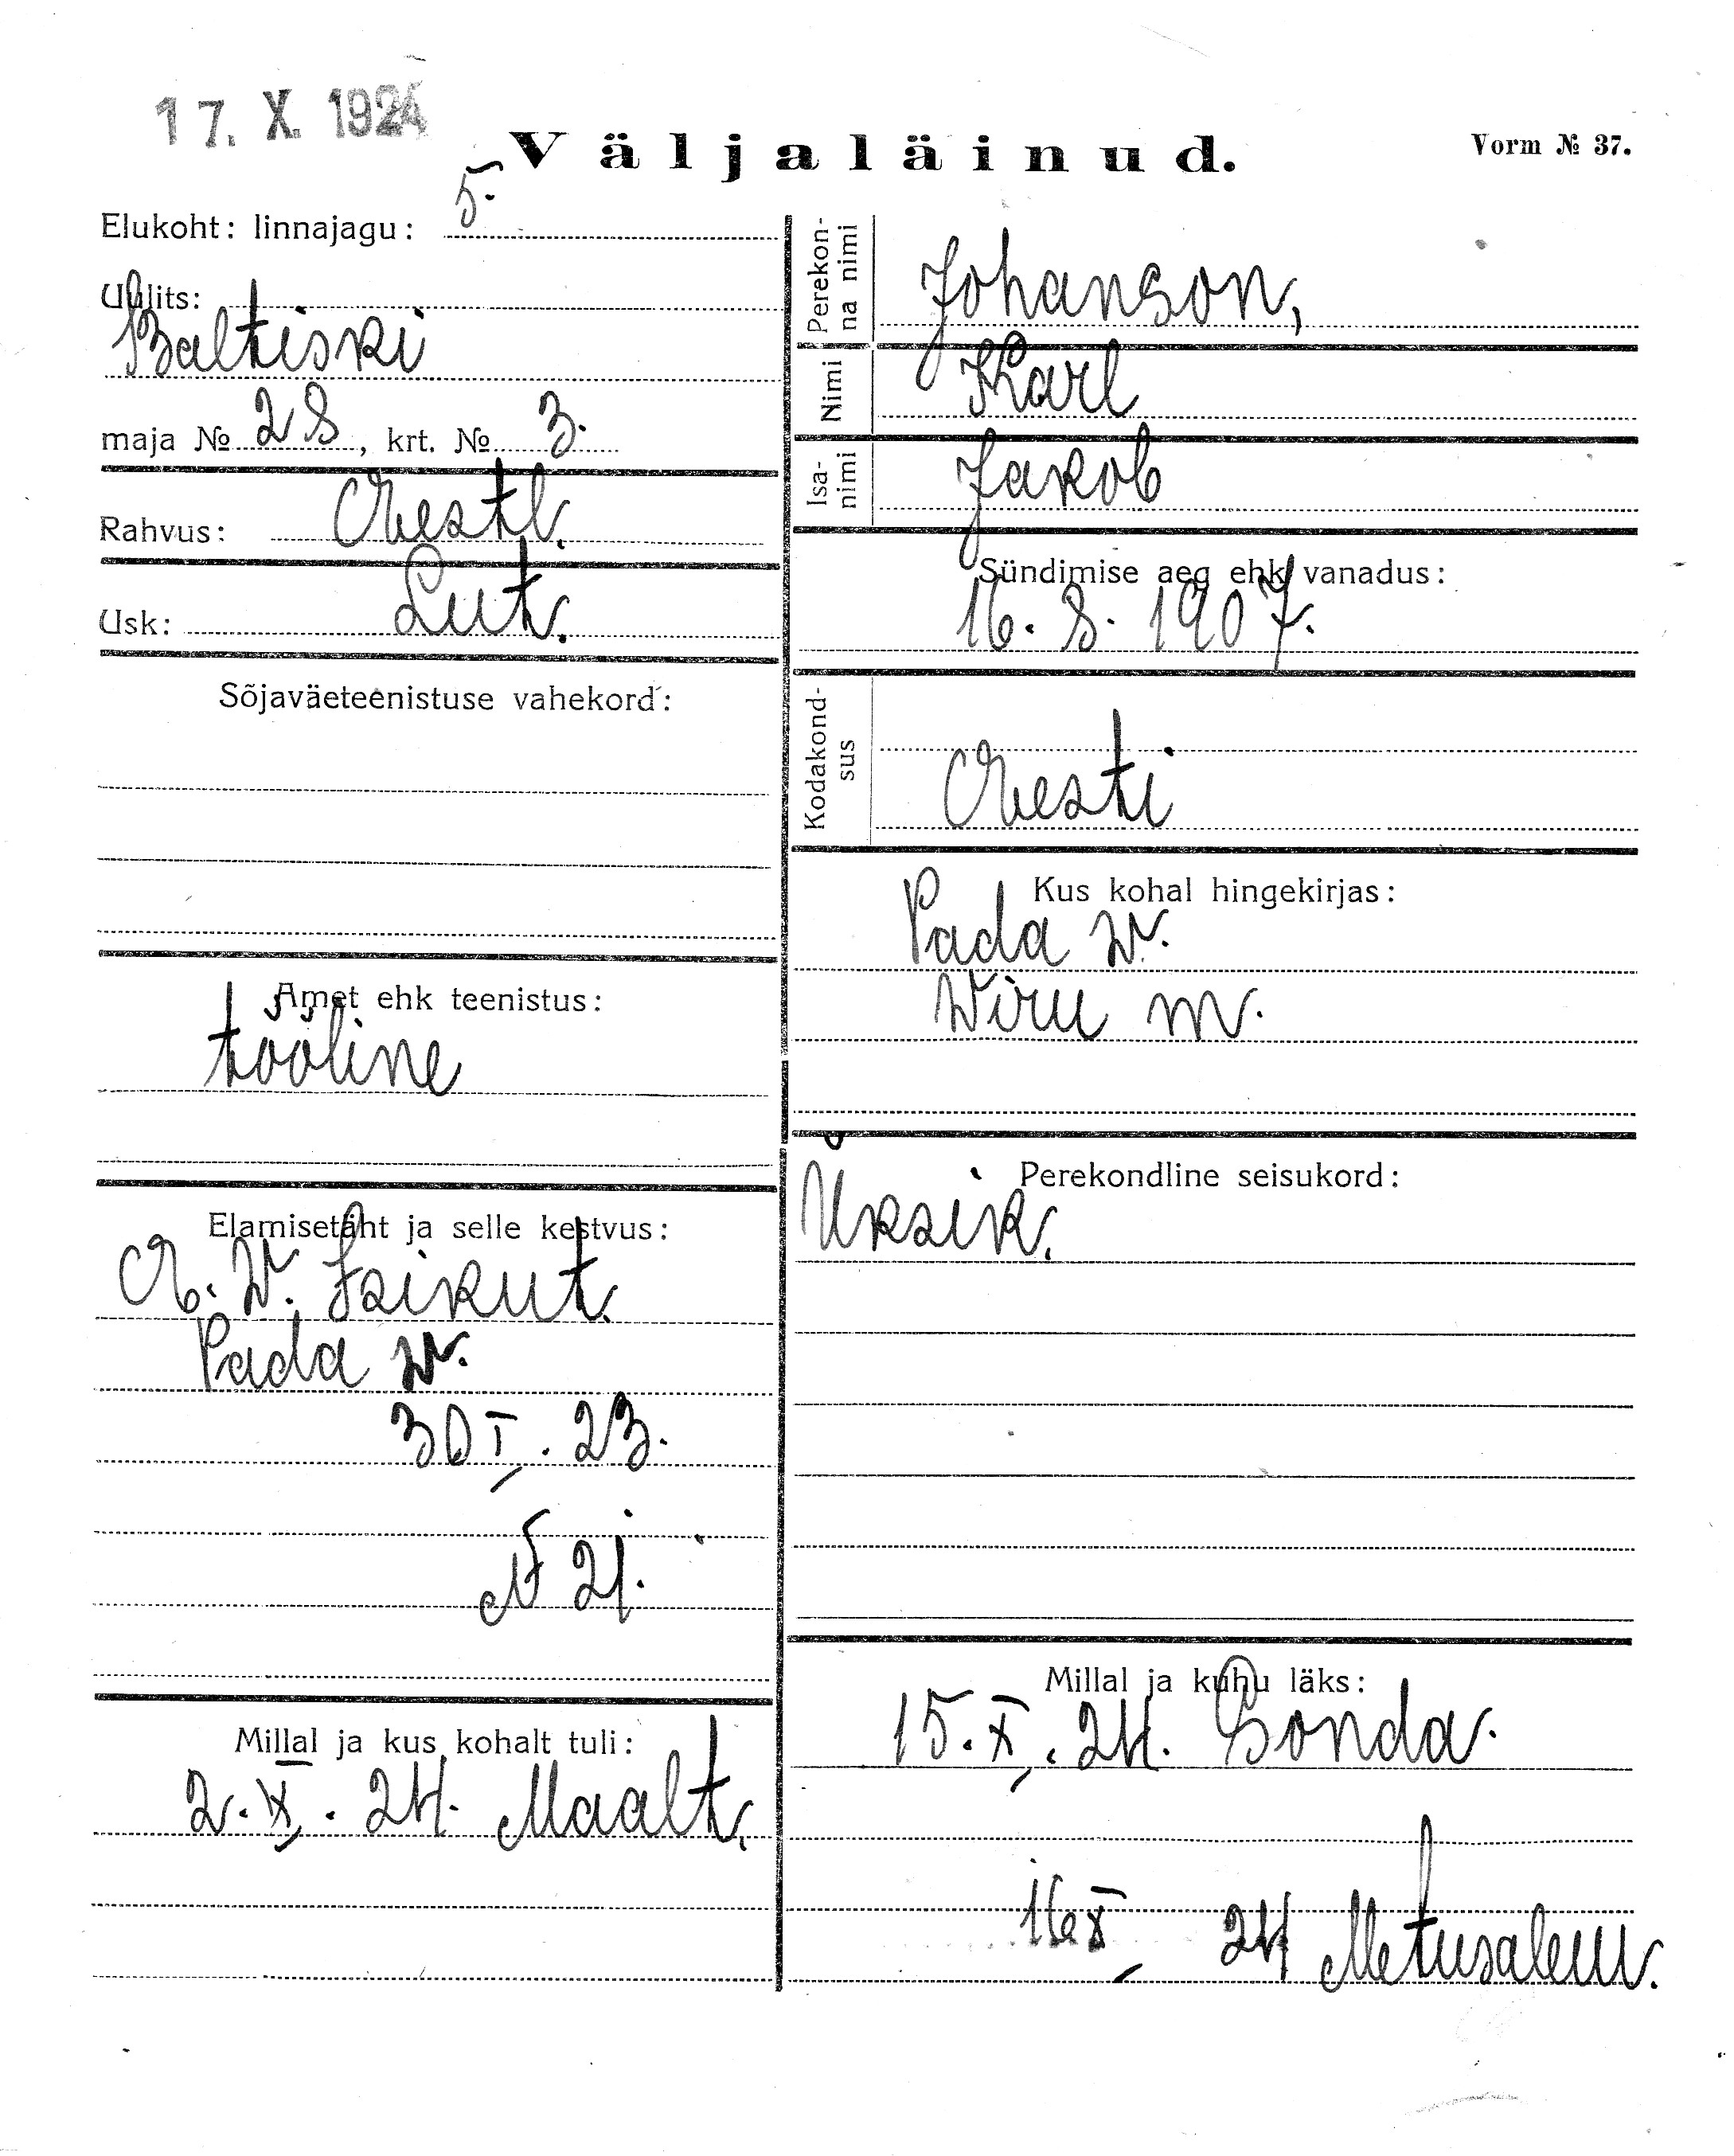 17. X. 1924
Väljaläinud.
Vorm № 37.
Elukoht: linnajagu: 5.
Uulits:
Baltiski
maja № 28, krt. № 3.
Rahvus: Eestl.
Usk: Lut.
Sõjaväeteenistuse vahekord:
Amet ehk teenistus:
tööline
Elamisetäht ja selle kestvus:
E. W. Isikut.
Pada w.
30 I. 23.
N 21.
Millal ja kus kohalt tuli:
2. IX. 24. Maalt.
Perekon-
na nimi
Johanson,
Nimi
Karl
Isa-
nimi
Jakob
Sündimise aeg ehk vanadus:
16. 8. 1907.
Kodakond-
sus
Eesti
Kus kohal hingekirjas:
Pada w.
Wiru m.
Perekondline seisukord:
Üksik.
Millal ja kuhu läks:
15. X. 24. Sonda.
16 X 24 Metusalem.